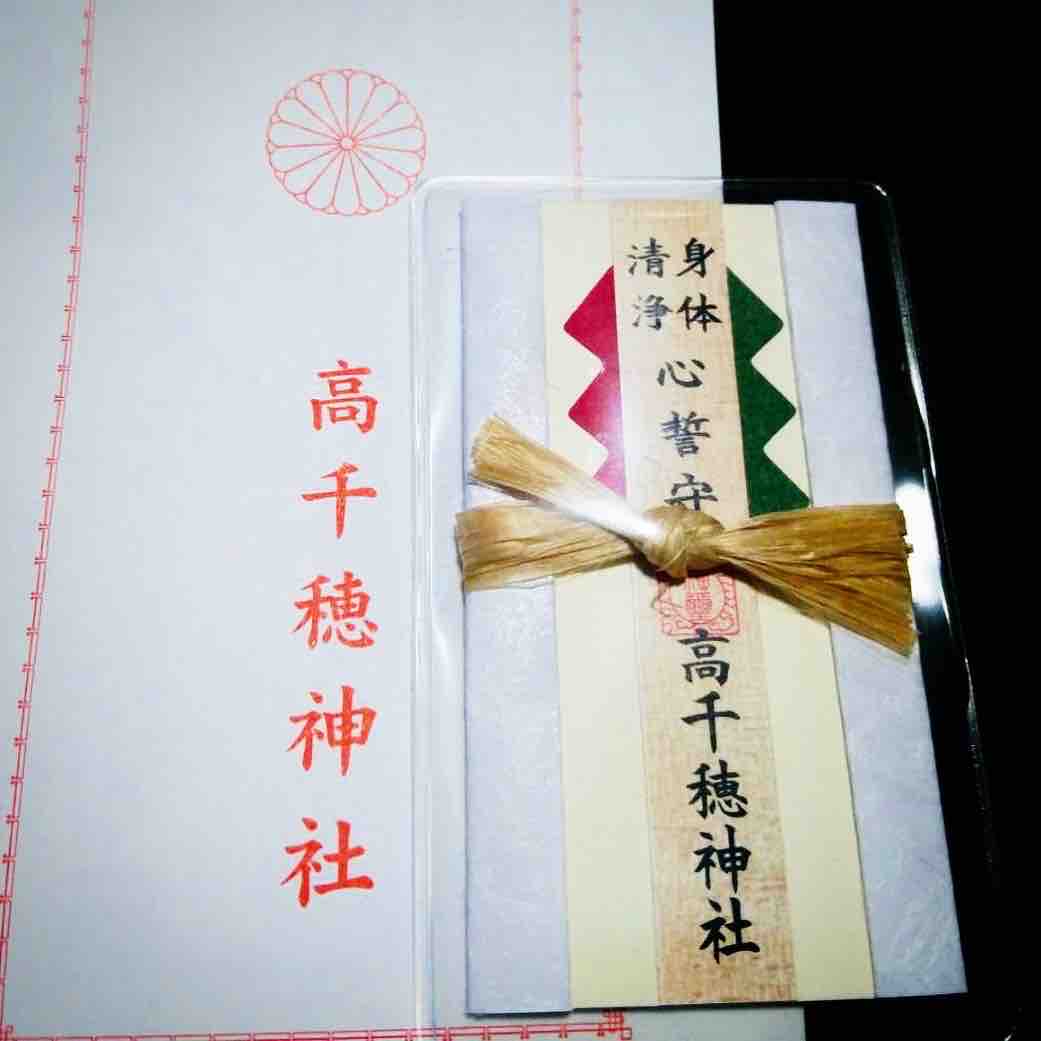 高千穂神社
身体
清浄
心誓守
高千穂神社